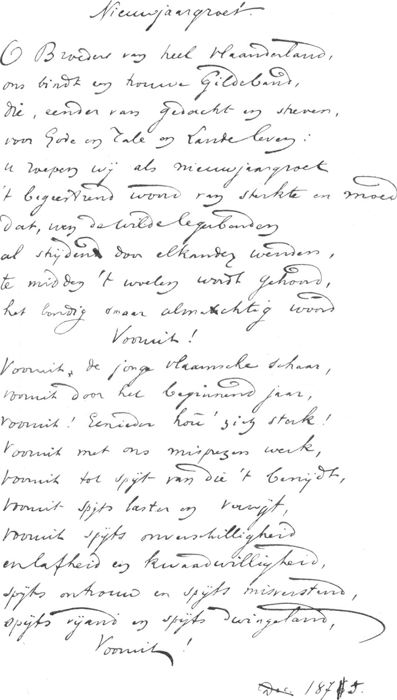 Nieuwjaargroet.
O Broeders van heel Vlaanderland,
ons bindt een trouwe Gildeband,
die, eender van gedacht en streven,
voor Gode en Tale en Lande leven:
u roepen wij als nieuwjaargroet
't begeestrend woord van sterkte en moed
dat, wen de wilde legerbenden
al strijdend door elkander wenden,
te midden 't woelen wordt gehoord,
het bondig maar almachtig woord
Vooruit!
Vooruit, de jonge vlaamsche schaar,
vooruit door het beginnend jaar,
vooruit! Eenieder hou' zich sterk!
Vooruit met ons misprezen werk,
vooruit tot spijt van die 't benijdt,
vooruit spijts laster en verwijt,
vooruit spijts onverschilligheid
en lafheid en kwaadwilligheid,
spijts ontrouw en spijts misverstand,
spijts vijand en spijts dwingeland,
Vooruit!
Dec. 1875.